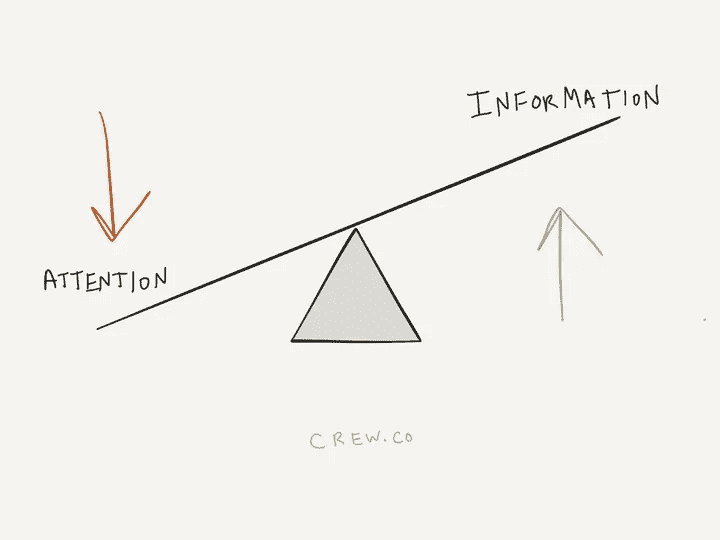 INFORMATION
ATTENTION
CREW.CO